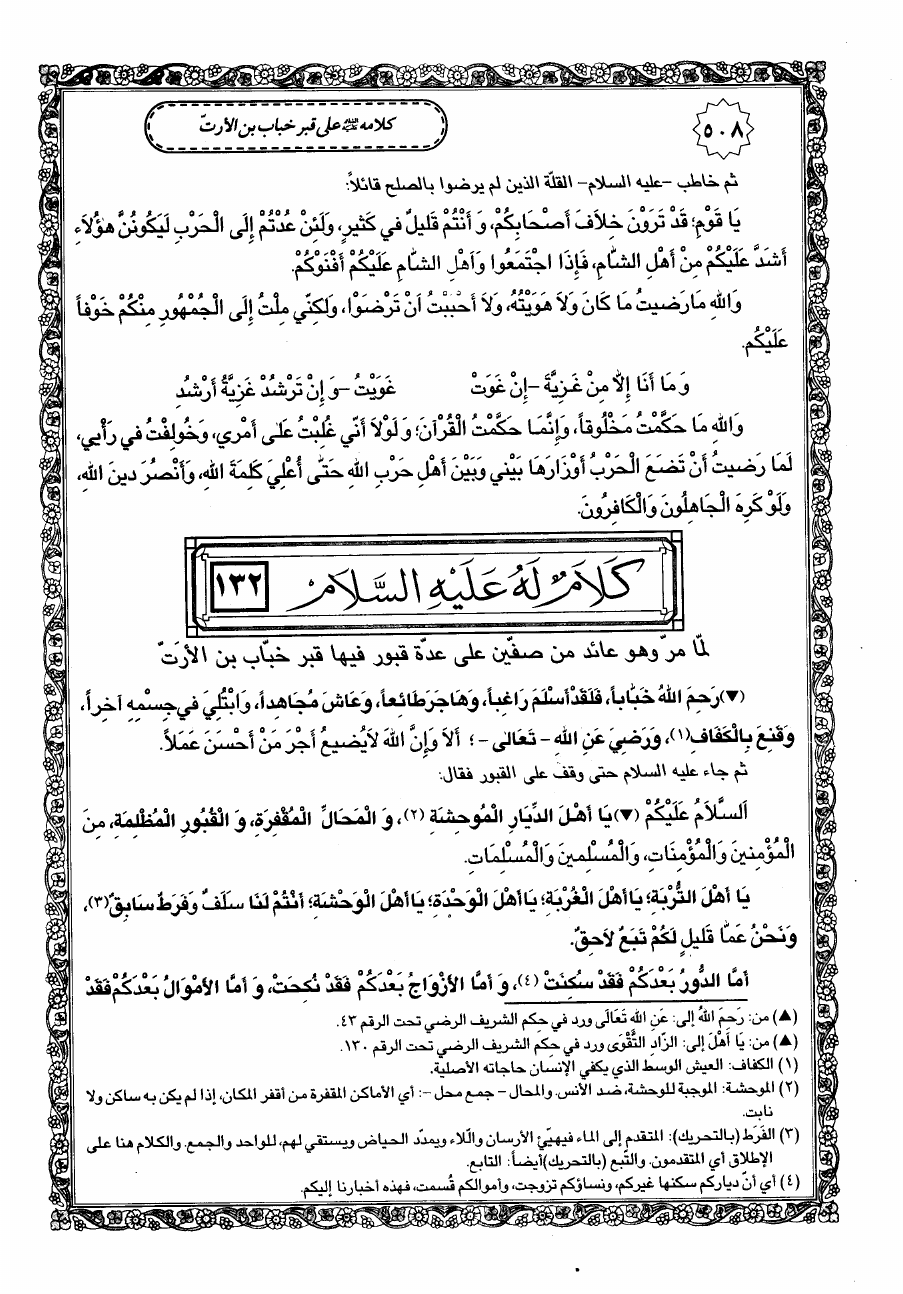 ٥٠٨
كلامه عليه السلام على قبر خباب بن الأرتّ
ثم خاطب -عليه السلام- القلّة الذين لم يرضوا بالصلح قائلاً:
يَا قَوْمِ؛ قَدْ تَرَوْنَ خِلاَفَ أَصْحَابِكُمْ، وَ أَنْتُمْ قَليلٌ في كَثيرٍ، وَلَئِنْ عُدْتُمْ إِلَى الْحَرْبِ لَيَكُونُنَّ هؤُلاَءِ
أَشَدَّ عَلَيْكُمْ مِنْ أَهْلِ الشّامِ، فَإِذَا اجْتَمَعُوا وَأَهْلِ الشّامِ عَلَيْكُمْ أَفْنَوْكُمْ.
وَاللهِ مَا رَضيتُ مَا كَانَ وَلاَ هَوَيْتُهُ، وَلاَ أَحْبَبْتُ أَنْ تَرْضَوْا، وَلكِنّي مِلْتُ إِلَى الْجُمْهُورِ مِنْكُمْ خَوْفاً
عَلَيْكُم.
وَ مَا أَنَا إِلاّ مِنْ غَزِيَّةَ -إِنْ غَوَتْ غَوَيْتُ -وَ إِنْ تَرْشَدْ غَزِيَّةُ أَرْشَدُ
وَاللهِ مَا حَكَّمْتُ مَخْلُوقاً، وَإِنَّمَا حَكَّمْتُ الْقُرْآنَ؛ وَ لَوْلاَ أَنّي غُلِبْتُ عَلى أَمْري، وَخُولِفْتُ في رَأْيي،
لَمَا رَضيتُ أَنْ تَضَعَ الْحَرْبُ أَوْزَارَهَا بَيْني وَبَيْنَ أَهْلِ حَرْبِ اللهِ حَتّى أُعْلِيَ كَلِمَةَ اللهِ، وَأَنْصُرَ دينَ اللهِ،
وَلَوْ كَرِهَ الْجَاهِلُونَ وَالْكَافِرُونَ.
كَلاَمٌ لَهُ عَلَيْهِ السَّلاَمُ ١٣٢
لمّا مرّ وهو عائد من صفّين على عدّة قبور فيها قبر خبّاب بن الأرَتّ
(▼) رَحِمَ اللهُ خَبّاباً، فَلَقَدْ أَسْلَمَ رَاغِباً، وَهَاجَرَ طَائِعاً، وَعَاشَ مُجَاهِداً، وَابْتُلِيَ في جِسْمِهِ آخِراً،
وَقَنِعَ بِالْكَفَافِ(١)، وَرَضِيَ عَنِ اللهِ - تَعَالى -؛ أَلاَ وَإِنَّ اللهَ لاَيُضيعُ أَجْرَ مَنْ أَحْسَنَ عَمَلاً.
ثم جاء عليه السلام حتى وقف على القبور فقال:
اَلسَّلاَمُ عَلَيْكُمْ (▼) يَا أَهْلَ الدِّيَارِ الْمُوحِشَةِ (٢)، وَ الْمَحَالِّ الْمُقْفِرَةِ، وَ الْقُبُورِ الْمُظْلِمَةِ، مِنَ
الْمُؤْمِنينَ وَالْمُؤْمِنَاتِ، وَالْمُسْلِمينَ وَالْمُسْلِمَاتِ.
يَا أَهْلَ التُّرْبَةِ؛ يَا أَهْلَ الْغُرْبَةِ؛ يَا أَهْلَ الْوَحْدَةِ؛ يَا أَهْلَ الْوَحْشَةِ؛ أَنْتُمْ لَنَا سَلَفٌ وَفَرَطٌ سَابِقٌ(٣)،
وَنَحْنُ عَمّا قَليلٍ لَكُمْ تَبَعٌ لاَحِقٌ.
أَمَّا الدُّورُ بَعْدَكُمْ فَقَدْ سُكِنَتْ (٤)، وَ أَمَّا الأَزْوَاجُ بَعْدَكُمْ فَقَدْ نُكِحَتْ، وَ أَمَّا الأَمْوَالُ بَعْدَكُمْ فَقَدْ
(▲) من: رَحِمَ اللهُ إلى: عَنِ اللهِ تَعَالَى ورد في حكم الشريف الرضي تحت الرقم ٤٣.
(▲) من: يَا أَهْلَ إلى: الزّادِ التَّقْوَى ورد في حكم الشريف الرضي تحت الرقم ١٣٠.
(١) الكفاف: العيش الوسط الذي يكفي الإنسان حاجاته الأصلية.
(٢) الموحشة: الموجبة للوحشة، ضد الأنس. والمحال - جمع محل -: أي الأماكن المقفرة من أقفر المكان، إذا لم يكن به ساكن ولا
نابت.
(٣) الفَرَط (بالتحريك): المتقدم إلى الماء فيهيّئ الأرسان والدّلاء ويمدّد الحياض ويستقي لهم، للواحد والجمع. والكلام هنا على
الإطلاق أي المتقدمون. والتّبع (بالتحريك)أيضاً: التابع.
(٤) أي أنّ دياركم سكنها غيركم، ونساؤكم تزوجت، وأموالكم قُسمت، فهذه أخبارنا إليكم.